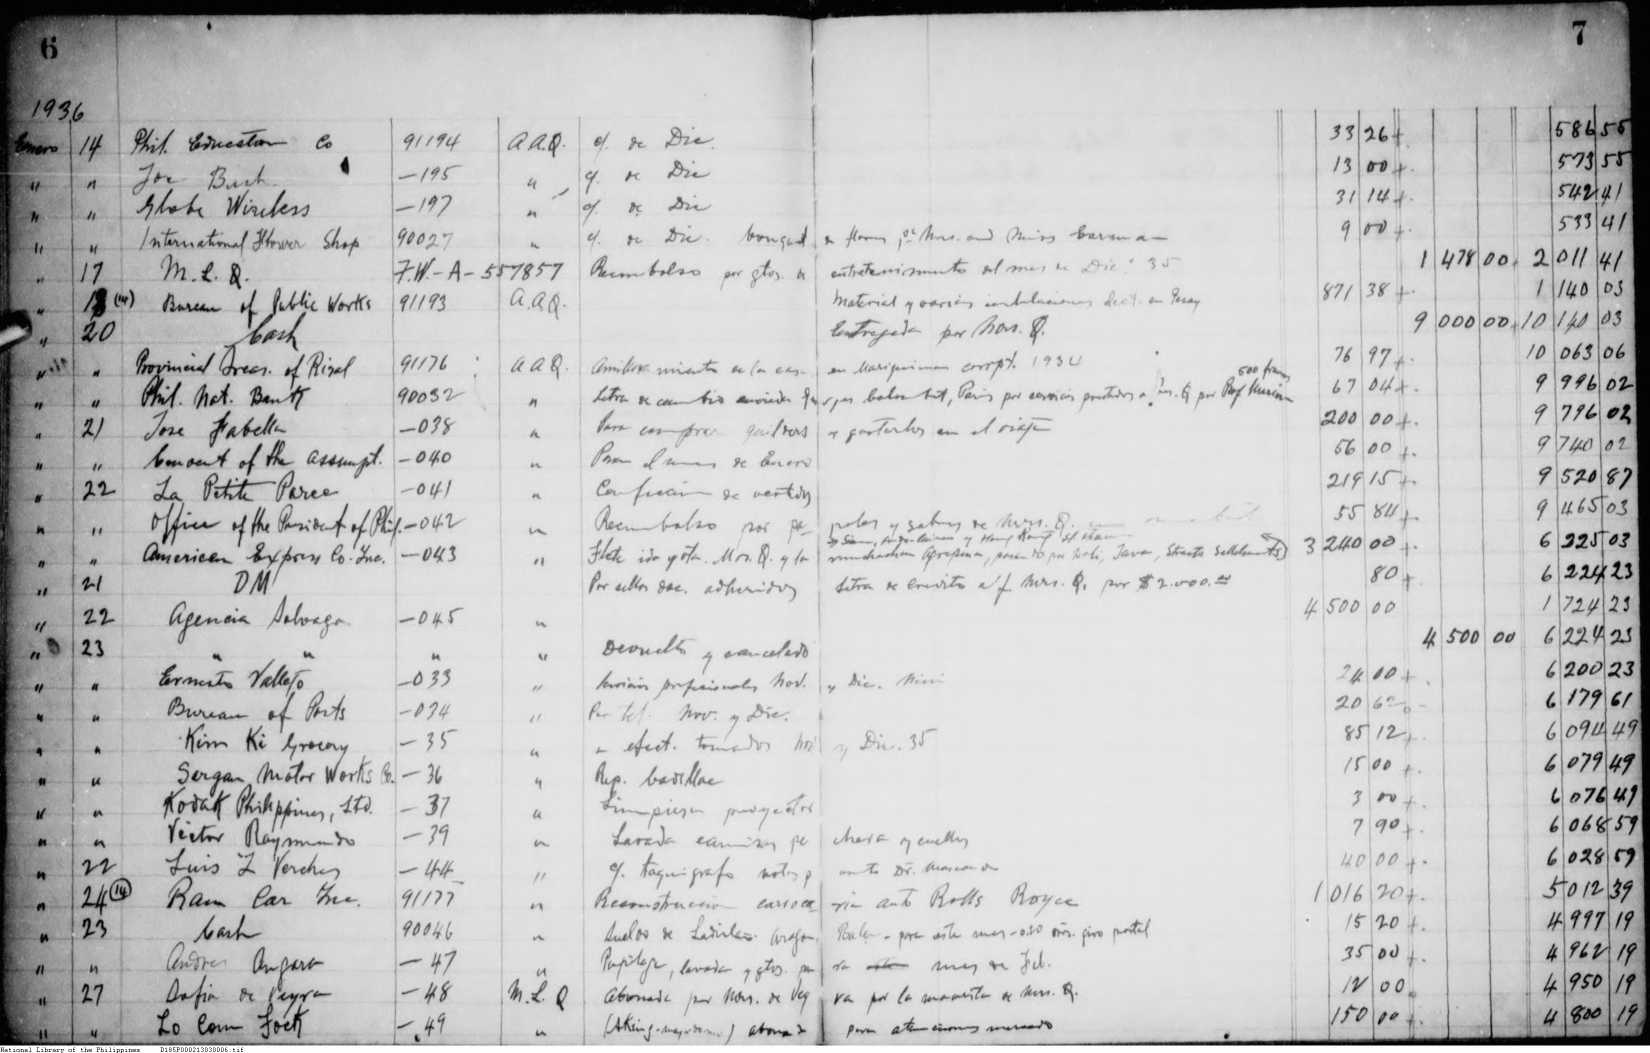 6 7
1936
Enero 14 Phil. Education Co 91194 A.A.Q. c/. de Dic. 33 26 + 586 55
" " Joe Bush —195 " c/. de Dic 13 00 + 573 55
" " Globe Wireless —197 " c/. de Dic 31 14 + 542 41
" " International Flower Shop 90027 " c/. de Dic. bouquet de flores Mrs. and Miss 9 00 + 533 41
" 17 M.L.Q. F.W.-A-557857 Reembolso por gtos. de entretenimiento del mes de Dic. 35 1 478 00 + 2 011 41
" 18 (14) Bureau of Public Works 91193 A.A.Q. Material y varias instalaciones elect. en Pasay 871 38 + 1 140 03
" 20 Cash Entregada por Mrs. Q. 9 000 00 + 10 140 03
" " Provincial Treas. of Rizal 91176 A.A.Q. Amillaramiento de la casa en Mariquina corrpt. 1934 76 97 + 10 063 06
500 francs
" " Phil. Nat. Bank 90032 " Letra de cambio enviada Paris por servicios prestados a Mrs. Q por Prof 67 04 + 9 996 02
" 21 Jose Fabella —038 " Para comprar guilders y gastarlos en el viaje 200 00 + 9 796 02
" " Convent of the Assumpt. —040 " Para el mes de Enero 56 00 + 9 740 02
" 22 La Petite Paree —041 " Confección de vestidos 219 15 + 9 520 87
" " Office of the President of Phil. —042 " Reembolso por de Mrs. Q. 55 84 + 9 465 03
" " American Express Co. Inc. —043 " Flete ida y vta. Mrs. Q. y la muchacha Agripina, por Bali, Java, Straits Settlements 3 240 00 + 6 225 03
" 21 DM Por sellos doc. adheridos letra de credito a/f Mrs. Q. por $2.000.00 80 + 6 224 23
" 22 Agencia Salvago —045 " 4 500 00 1 724 23
" 23 " " " " Devuelto y cancelado 4 500 00 6 224 23
" " Ernesto Vallejo —033 " Servicios profesionales Nov. y Dic. Nini 24 00 + 6 200 23
" " Bureau of Posts —034 " Por tel. Nov. y Dic. 20 62 6 179 61
" " Kim Ki Grocery —35 " " efect. tomados Nov y Dic. 35 85 12 + 6 094 49
" " Sergan Motor Works Co. —36 " Rep. Cadillac 15 00 + 6 079 49
" " Kodak Philippines, Ltd. —37 " Limpieza proyector 3 00 + 6 076 49
" " Victor Raymundo —39 " Lavada camisas pechera y cuellos 7 90 + 6 068 59
" 22 Luis L Verches —44 " c/. taquigrafo notas 40 00 + 6 028 59
" 24 (14) Ram Car Inc. 91177 " Reconstruccion carroceria auto Rolls Royce 1 016 20 + 5 012 39
" 23 Cash 90046 " Sueldo de Ladislao Aragon, Baler - para este mes -0.20 giro postal 15 20 + 4 997 19
" " Andres Angara —47 " Pupilaje, lavada y gtos. para mes de Feb. 35 00 + 4 962 19
" 27 Sofia de Veyra —48 M.L.Q Abonada por Mrs. de Veyra por la maestra de Mrs. Q. 12 00 4 950 19
" " Lo Com Fock —49 " (Aking-mayordomo) abonado para atenciones mercado 150 00 + 4 800 19
National Library of the Philippines D185P000213030006.tif